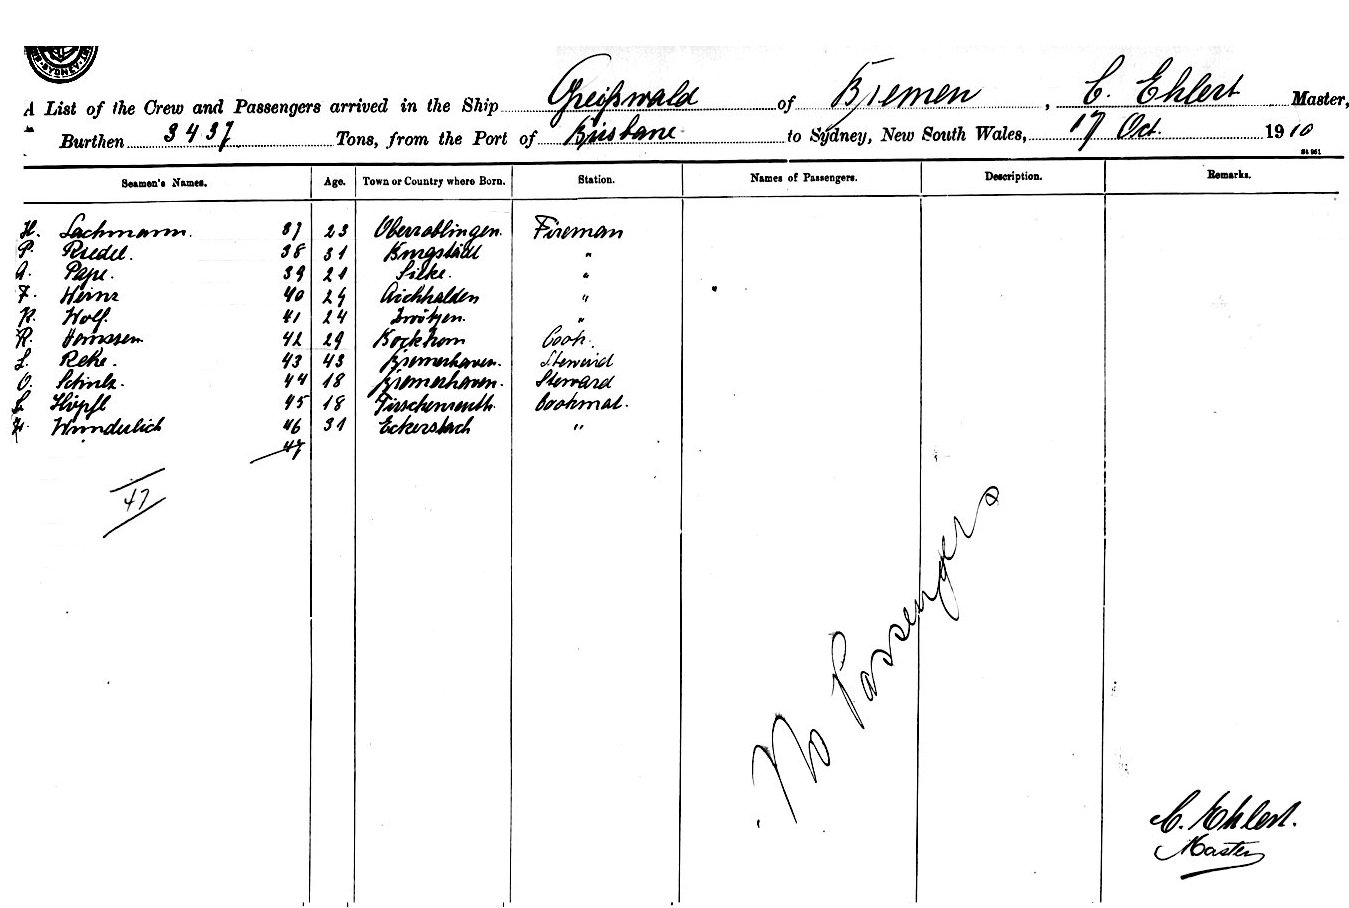 SYDNEY
A List of the Crew and Passengers arrived in the Ship Greifswald of Bremen, C. Ehlert Master,
Burthen 3437 Tons, from the Port of Brisbane to Sydney, New South Wales, 17 Oct. 1910
Seamen's Names. Age. Town or Country where Born. Station. Names of Passengers. Description. Remarks.
H. Lachmann. 37 23 Oberroblingen. Fireman
P. Riedel. 38 31 Burgstädt "
A. Pape. 39 21 Silke. "
F. Heinz 40 24 Aichhalden "
P. Wolf. 41 24 Zwötzen. "
R. Hamssen. 42 29 Bockhorn Cook.
L. Reke. 43 43 Bremerhaven. Steward
O. Schulz. 44 18 Bremerhaven. Steward
Höpfl 45 18 Tirschenreuth. Cooksmat.
Wunderlich 46 31 Eckersbach "
47
47
No Passengers
C. Ehlert.
Master